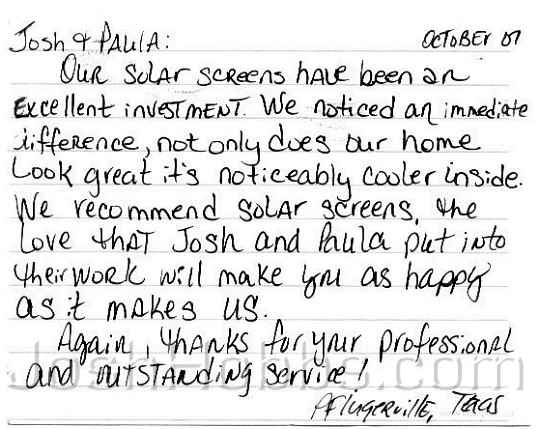 Josh & PAULA: OCTOBER 07
Our SOLAR SCREENS have been an
Excellent investment. We noticed an immediate
difference, not only does our home
Look great it's noticeably cooler inside.
We recommend SOLAR screens, the
Love that Josh and Paula put into
their work will make you as happy
as it makes us.
Again, thanks for your professional
and outstanding service!
Pflugerville, Texas